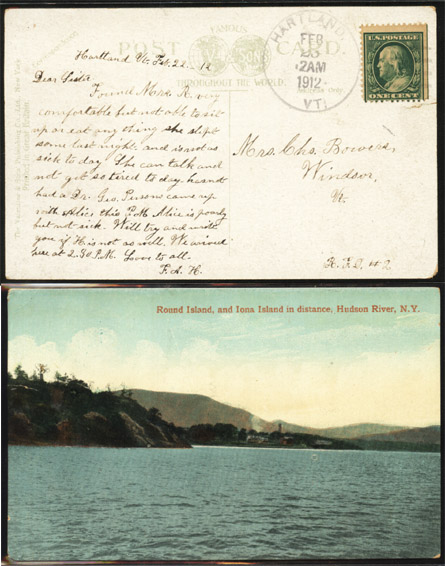 FAMOUS
POST CARD
THROUGHOUT THE WORLD.
Hartland Vt. Feb. 22 - 12
Dear Sister
Found Mrs. R. very
comfortable but not able to sit
up or eat any thing she slept
some last night. and is not as
sick to day. She can talk and
not get so tired to day. has not
had a Dr. Geo. Pierons came up
with Alice this P.M Alice is poorly
but not sick. Will try and write
you if H is not as well. We arrived
here at 2.30 P.M. Love to all.
F. A. H.
HARTLAND
FEB
23
2AM
1912
VT.
U.S. POSTAGE
ONE CENT
Mrs. Chs. Bowers,
Windsor,
Vt.
R.F.D. #2
Round Island, and Iona Island in distance, Hudson River, N.Y.